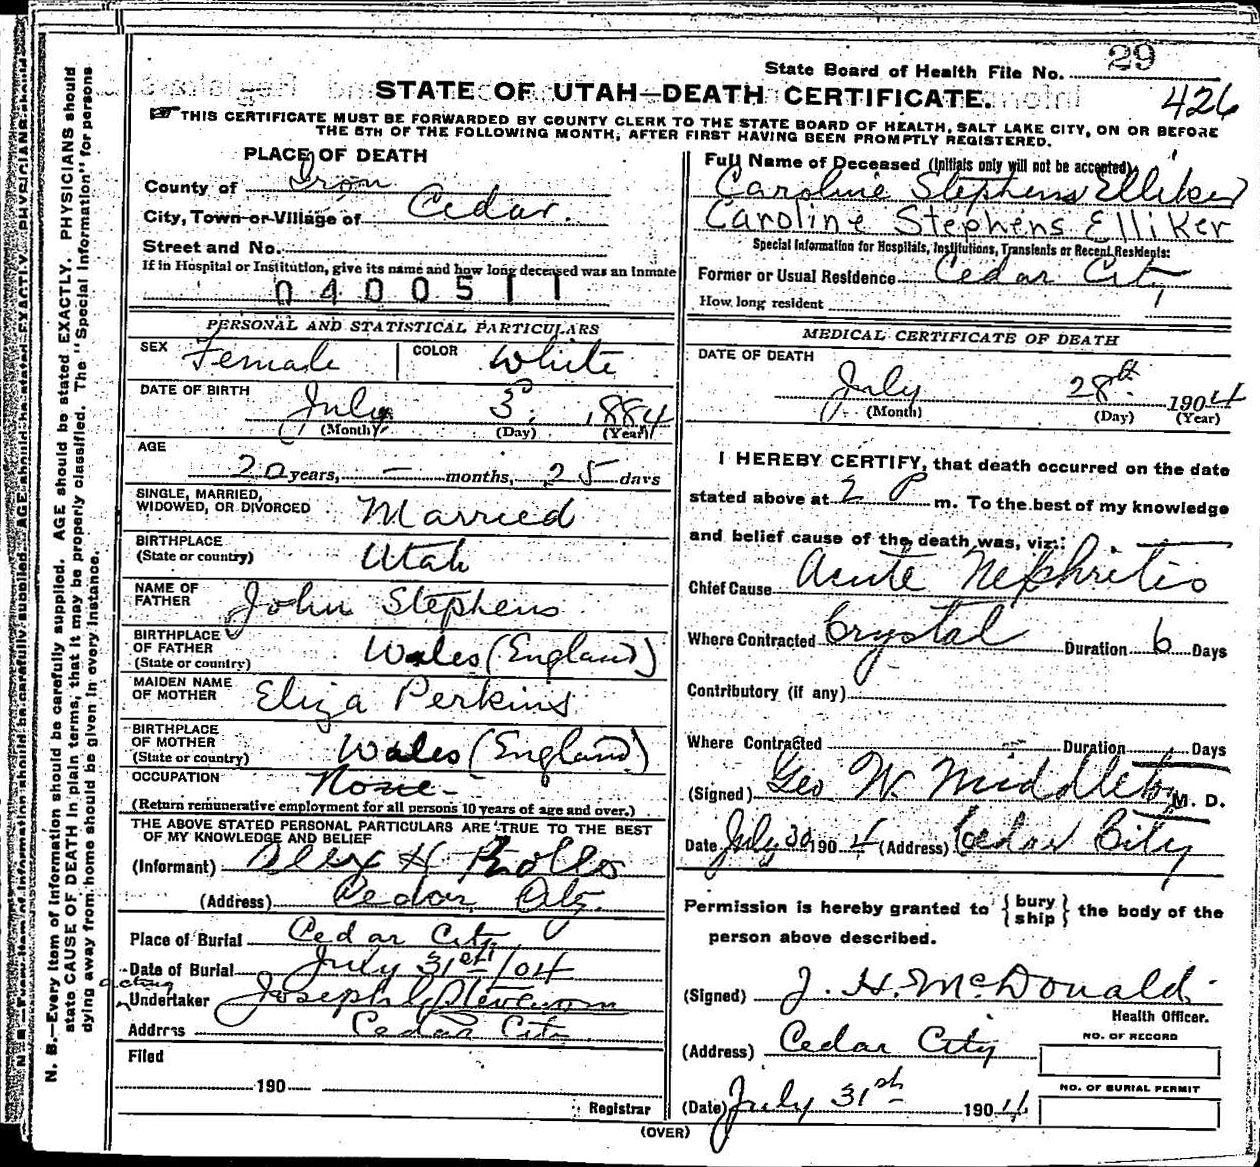 State Board of Health File No. 29
426
STATE OF UTAH—DEATH CERTIFICATE.
THIS CERTIFICATE MUST BE FORWARDED BY COUNTY CLERK TO THE STATE BOARD OF HEALTH, SALT LAKE CITY, ON OR BEFORE
THE 5TH OF THE FOLLOWING MONTH, AFTER FIRST HAVING BEEN PROMPTLY REGISTERED.
PLACE OF DEATH
County of Iron
City, Town or Village of Cedar.
Street and No.
If in Hospital or Institution, give its name and how long deceased was an Inmate
0400511
PERSONAL AND STATISTICAL PARTICULARS
SEX Female COLOR White
DATE OF BIRTH
July 3rd, 1884
(Month) (Day) (Year)
AGE
20 years, — months, 25 days
SINGLE, MARRIED,
WIDOWED, OR DIVORCED Married
BIRTHPLACE
(State or country) Utah
NAME OF
FATHER John Stephens
BIRTHPLACE
OF FATHER
(State or country) Wales (England)
MAIDEN NAME
OF MOTHER Eliza Perkins
BIRTHPLACE
OF MOTHER
(State or country) Wales (England)
OCCUPATION None
(Return remunerative employment for all persons 10 years of age and over.)
THE ABOVE STATED PERSONAL PARTICULARS ARE TRUE TO THE BEST
OF MY KNOWLEDGE AND BELIEF
(Informant) Alex H Rollo
(Address) Cedar City.
Place of Burial Cedar City
Date of Burial July 31st/04
acting
Undertaker Joseph
Address Cedar City
Filed
190
Registrar
Full Name of Deceased (Initials only will not be accepted)
Caroline Stephens Elliker
Caroline Stephens Elliker
Special Information for Hospitals, Institutions, Transients or Recent Residents:
Former or Usual Residence Cedar City
How long resident
MEDICAL CERTIFICATE OF DEATH
DATE OF DEATH
July 28th 1904
(Month) (Day) (Year)
I HEREBY CERTIFY, that death occurred on the date
stated above at 2 P m. To the best of my knowledge
and belief cause of the death was, viz.:
Chief Cause Acute Nephritis
Where Contracted Crystal Duration 6 Days
Contributory (if any)
Where Contracted Duration Days
(Signed) Geo W Middleton M. D.
Date July 30 1904 (Address) Cedar City
Permission is hereby granted to {bury
ship} the body of the
person above described.
(Signed) J. H. McDonald
Health Officer.
(Address) Cedar City
NO. OF RECORD
NO. OF BURIAL PERMIT
(Date) July 31st 1904
(OVER)
N. B.—Every item of information should be carefully supplied. AGE should be stated EXACTLY. PHYSICIANS should
state CAUSE OF DEATH in plain terms, that it may be properly classified. The "Special Information" for persons
dying away from home should be given in every instance.